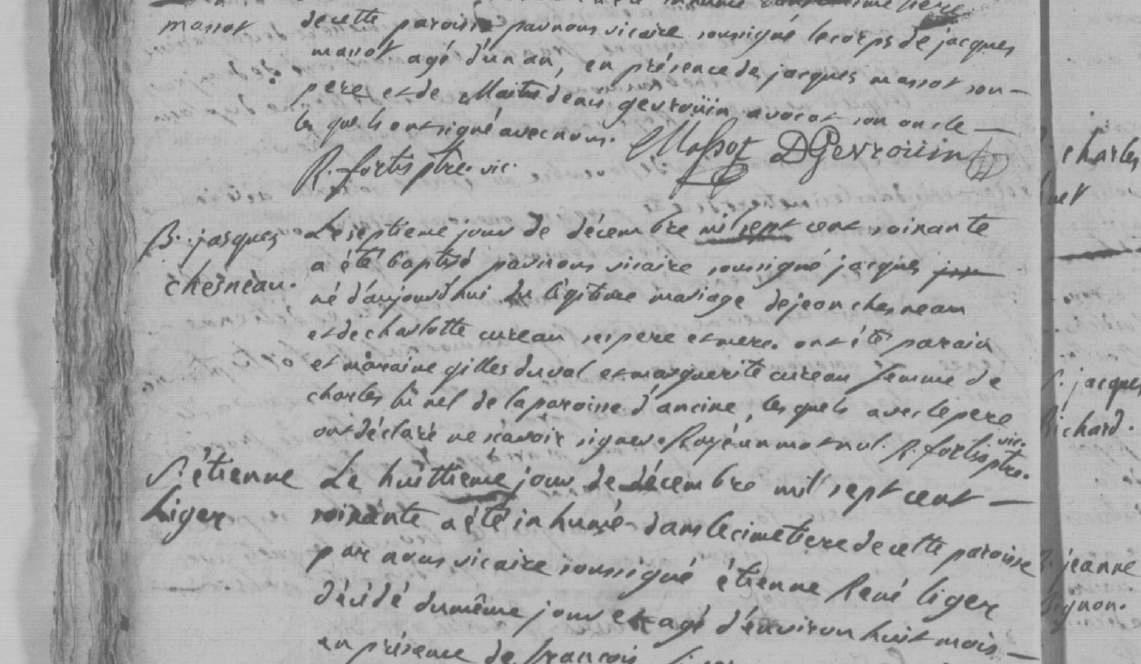 massot
de cette paroisse par nous vicaire soussigné le corps de jacques
massot agé d'un an, en présence de jacques massot son
pere et de Maitre denis gevrouin avocat son oncle
les quels ont signé avec nous. Massot DGevrouin
R. fortis ptre. vic.
B. jacques
chesneau.
Le septieme jour de décembre mil sept cent soixante
a été baptisé par nous vicaire soussigné jacques
né d'aujourd'hui du légitime mariage de jean chesneau
et de charlotte cureau ses pere et mere. ont été parain
et maraine gilles duval et marguerite cureau femme de
charles de la paroisse d'ancine, les quels avec le pere
ont déclaré ne scavoir signer. Rayé un mot nul. R. fortis ptre. vic.
S. étienne
Liger
Le huittieme jour de décembre mil sept cent
soixante a été inhumé dans le cimetiere de cette paroisse
par nous vicaire soussigné étienne René Liger
décédé du même jour et agé d'environ huit mois
en présence de françois
charles
S. jacques
Richard.
jeanne